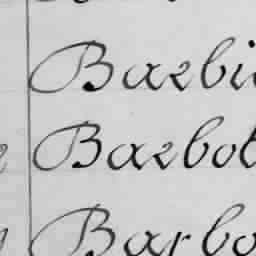 Barbi
Barbot
Barbo